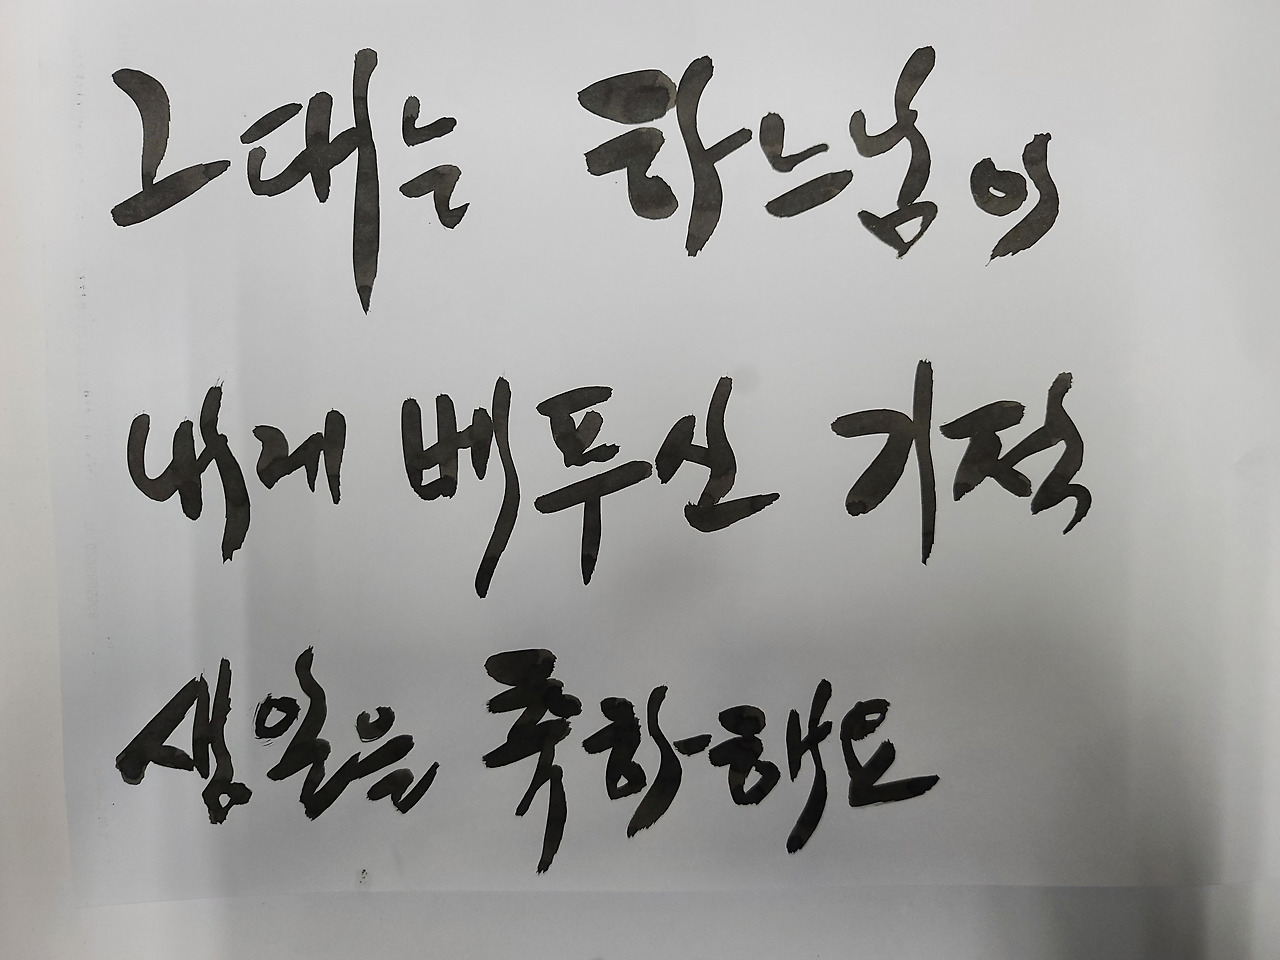 그대는 하느님이
내게 베푸신 기적
생일은 축하해요